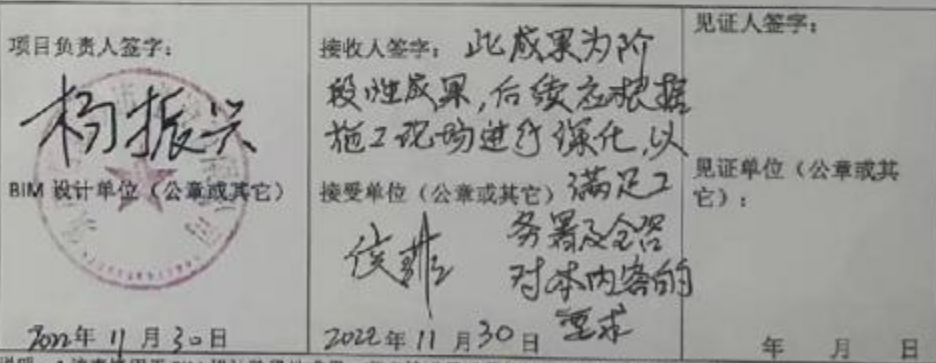 项目负责人签字：
杨振兴
BIM 设计单位（公章或其它）
2022年 11 月 30 日
接收人签字：此成果为阶
段性成果，后续应根据
施工现场进行深化，以
接受单位（公章或其它）满足工
务署及全咨
对本内容的
要求
侯菲
2022 年 11 月 30 日
见证人签字：
见证单位（公章或其
它）：
年 月 日